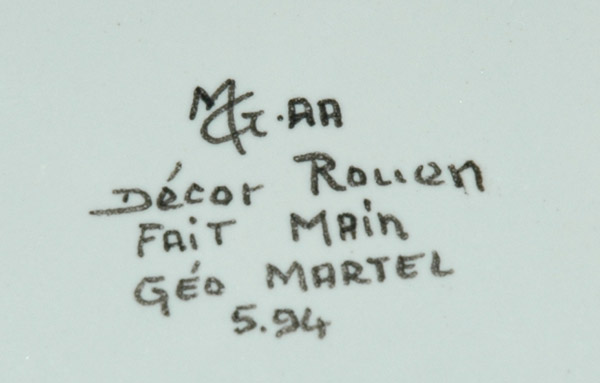 MG.AA
Décor Rouen
FAIT MAIN
GÉO MARTEL
5.94